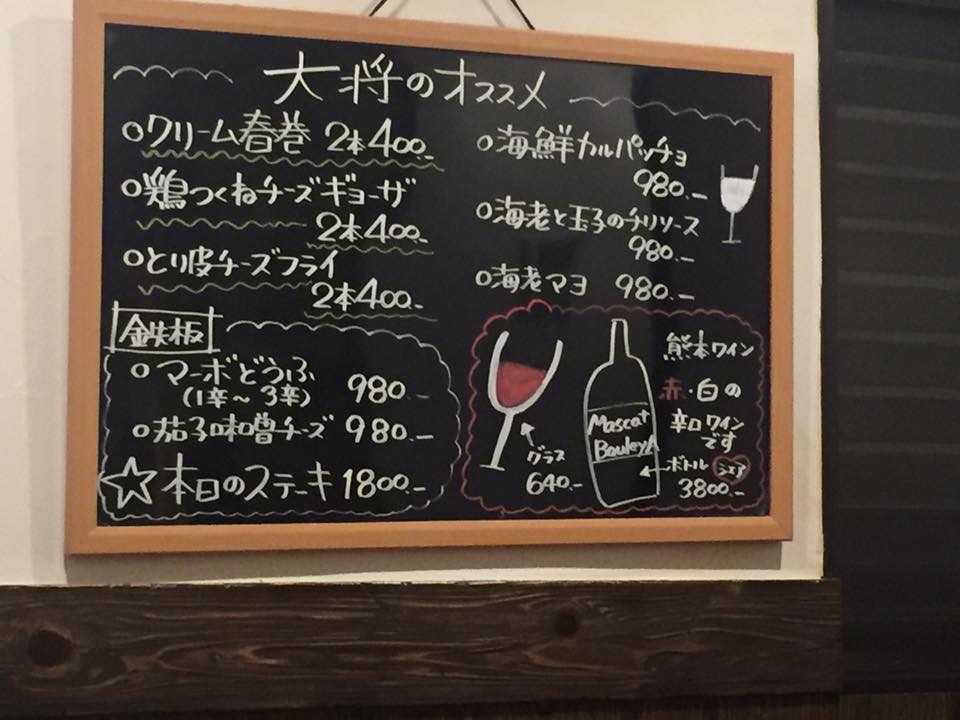 大将のオススメ
○クリーム春巻 2本400.-
○鶏つくねチーズギョーザ
2本400.-
○とり皮チーズフライ
2本400.-
鉄板
○マーボどうふ 980.-
(1辛～3辛)
○茄子味噌チーズ 980.-
☆本日のステーキ 1800.-
○海鮮カルパッチョ
980.-
○海老と玉子のチリソース
980.-
○海老マヨ 980.-
熊本ワイン
赤・白の
辛口ワイン
です
Mascat
BaileyA
グラス
640.-
ボトル シェア
3800.-